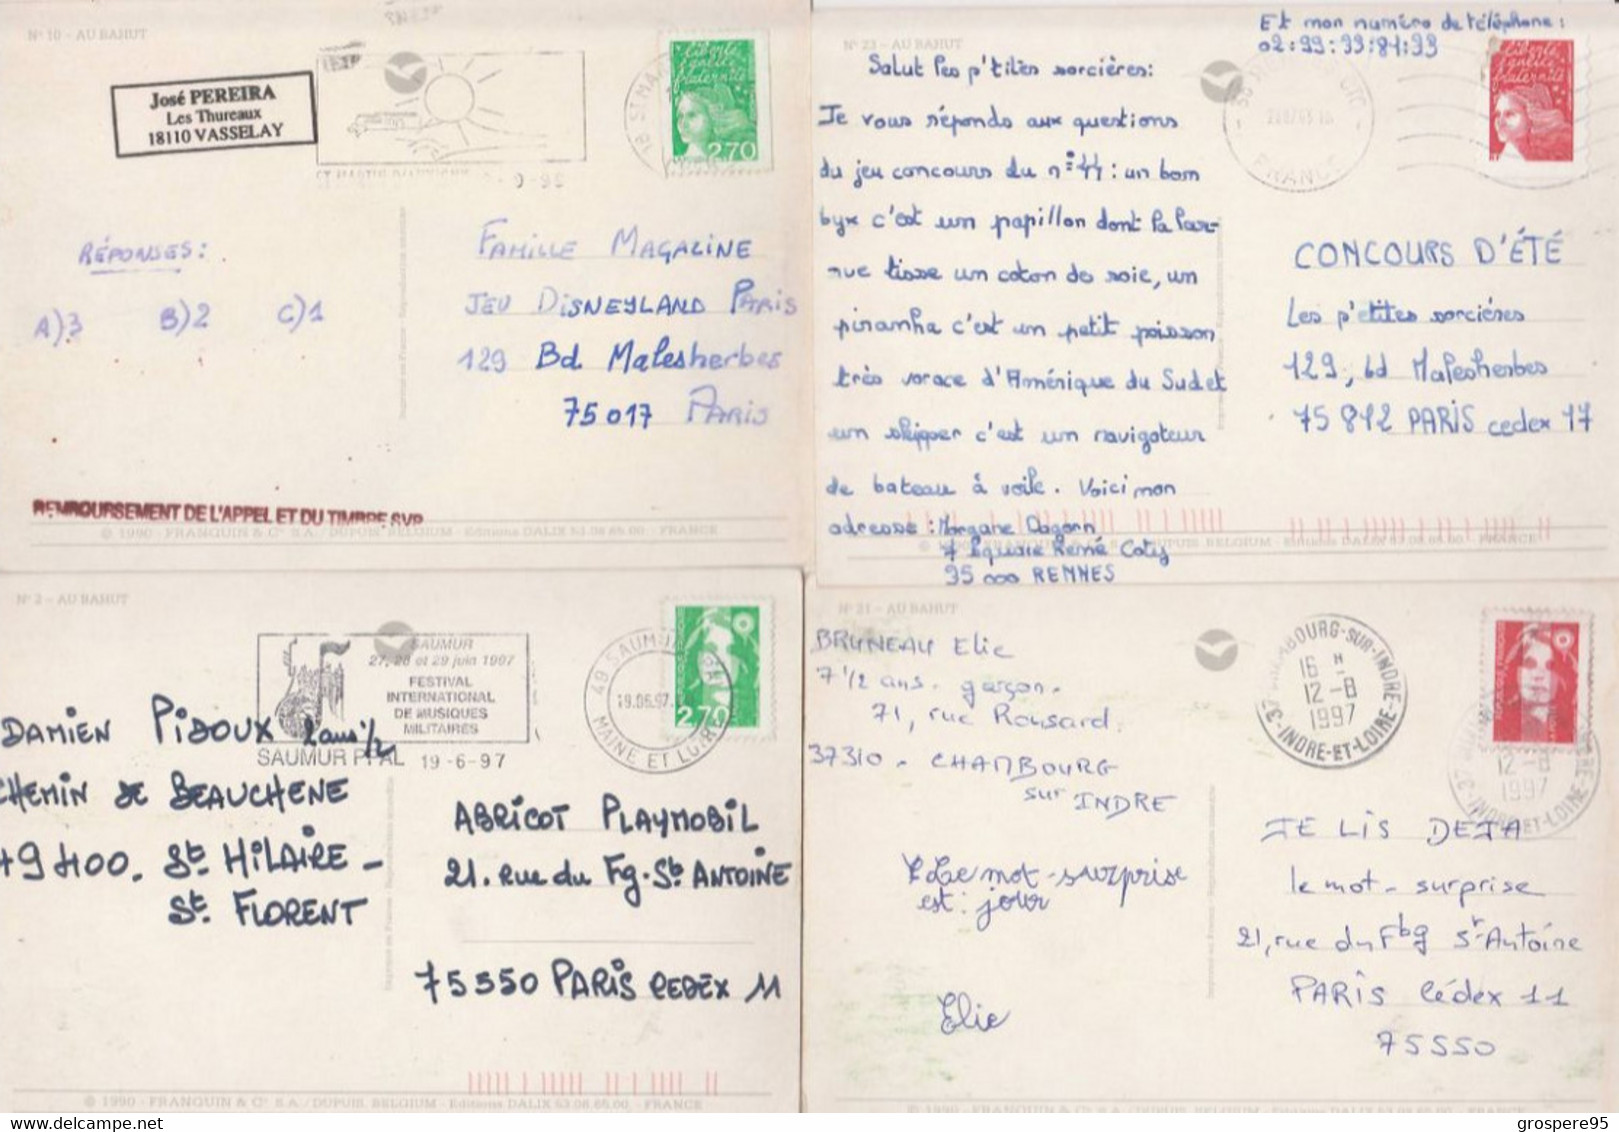 N° 10 - AU BAHUT
José PEREIRA
Les Thureaux
18110 VASSELAY
2,70
RÉPONSES :
A)3 B)2 C)1
FAMILLE MAGAZINE
JEU DISNEYLAND PARIS
129 Bd Malesherbes
75017 PARIS
REMBOURSEMENT DE L'APPEL ET DU TIMBRE SVP
© 1990 - FRANQUIN & Cie S.A. / DUPUIS, BELGIUM - Editions DALIX 53.08.65.00 - FRANCE
Et mon numéro de téléphone :
02.99.33.81.33
N° 23 - AU BAHUT
Salut les p'tites sorcières :
Je vous réponds aux questions
du jeu concours du n° 44 : un bom
byx c'est un papillon dont la lar-
rue tisse un coton de soie, un
piranha c'est un petit poisson
très vorace d'Amérique du Sud et
un skipper c'est un navigateur
de bateau à voile. Voici mon
adresse : Morgane Dagorn
7 square René Coty
35 000 RENNES
FRANCE
CONCOURS D'ÉTÉ
Les p'tites sorcières
129, bd Malesherbes
75 812 PARIS cedex 17
N° 2 - AU BAHUT
SAUMUR
27, 28 et 29 juin 1997
FESTIVAL
INTERNATIONAL
DE MUSIQUES
MILITAIRES
SAUMUR PPAL 19-6-97
19.06.97
MAINE ET LOIRE
2,70
DAMIEN PIDOUX 2 ans 1/2
CHEMIN DE BEAUCHENE
49400. St HILAIRE -
St. FLORENT
ABRICOT PLAYMOBIL
21. rue du Fg. St ANTOINE
75550 PARIS CEDEX 11
© 1990 - FRANQUIN & Cie S.A. / DUPUIS, BELGIUM - Editions DALIX 53.08.65.00 - FRANCE
N° 21 - AU BAHUT
BRUNEAU Elie
7 1/2 ans. garçon.
71, rue Ronsard
37310 - CHAMBOURG
sur INDRE
37 CHAMBOURG-SUR-INDRE
16 H
12-8
1997
INDRE-ET-LOIRE
Le mot-surprise
est : jour
Elie
JE LIS DEJA
le mot-surprise
21, rue du Fbg St-Antoine
PARIS Cédex 11
75550